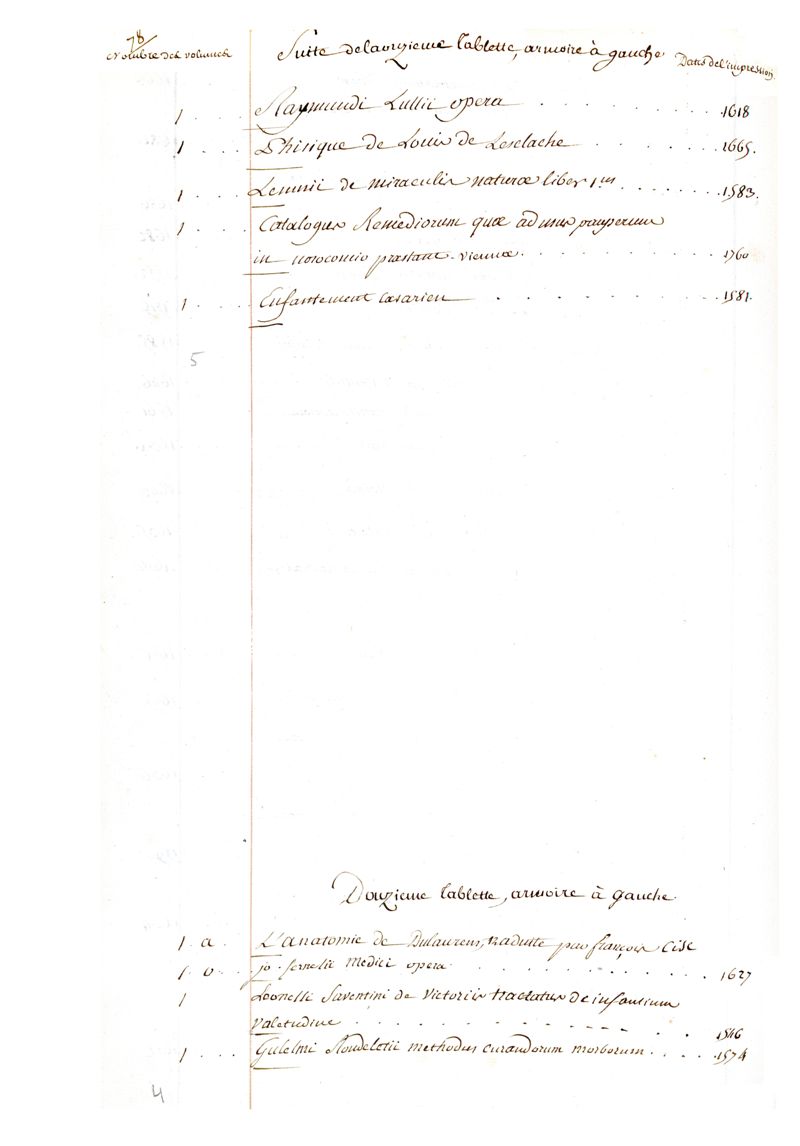 78
Nombre des volumes Suite de la onzieme tablette, armoire à gauche. Dates de l'impression.
1 . . . Raymundi Lullii opera . . . . . . . . . . 1618
1 . . . Phisique de Louis de Lesclache . . . . . . . 1665.
1 . . . Lemnii de miraculis naturæ liber 1us . . . . . . . 1583.
1 . . . Catalogus Remediorum quæ ad usus pauperum
in nosocomio præstant. viennæ . . . . . . . . . 1760
1 . . . . Enfantement cæsarien . . . . . . . . 1581.
5
Douzieme tablette, armoire à gauche.
1 . a . L'anatomie de Dulaurens, traduite par françois Cise
1 . o . . jo. fernelii Medici opera . . . . . . . . . 1627
1 Leonelli faventini de Victoriis tractatus de infantium
valetudine . . . . . . . . . . . . 1546
1 . . . Gulelmi Rondeletii methodus curandorum morborum . . . . 1574
4